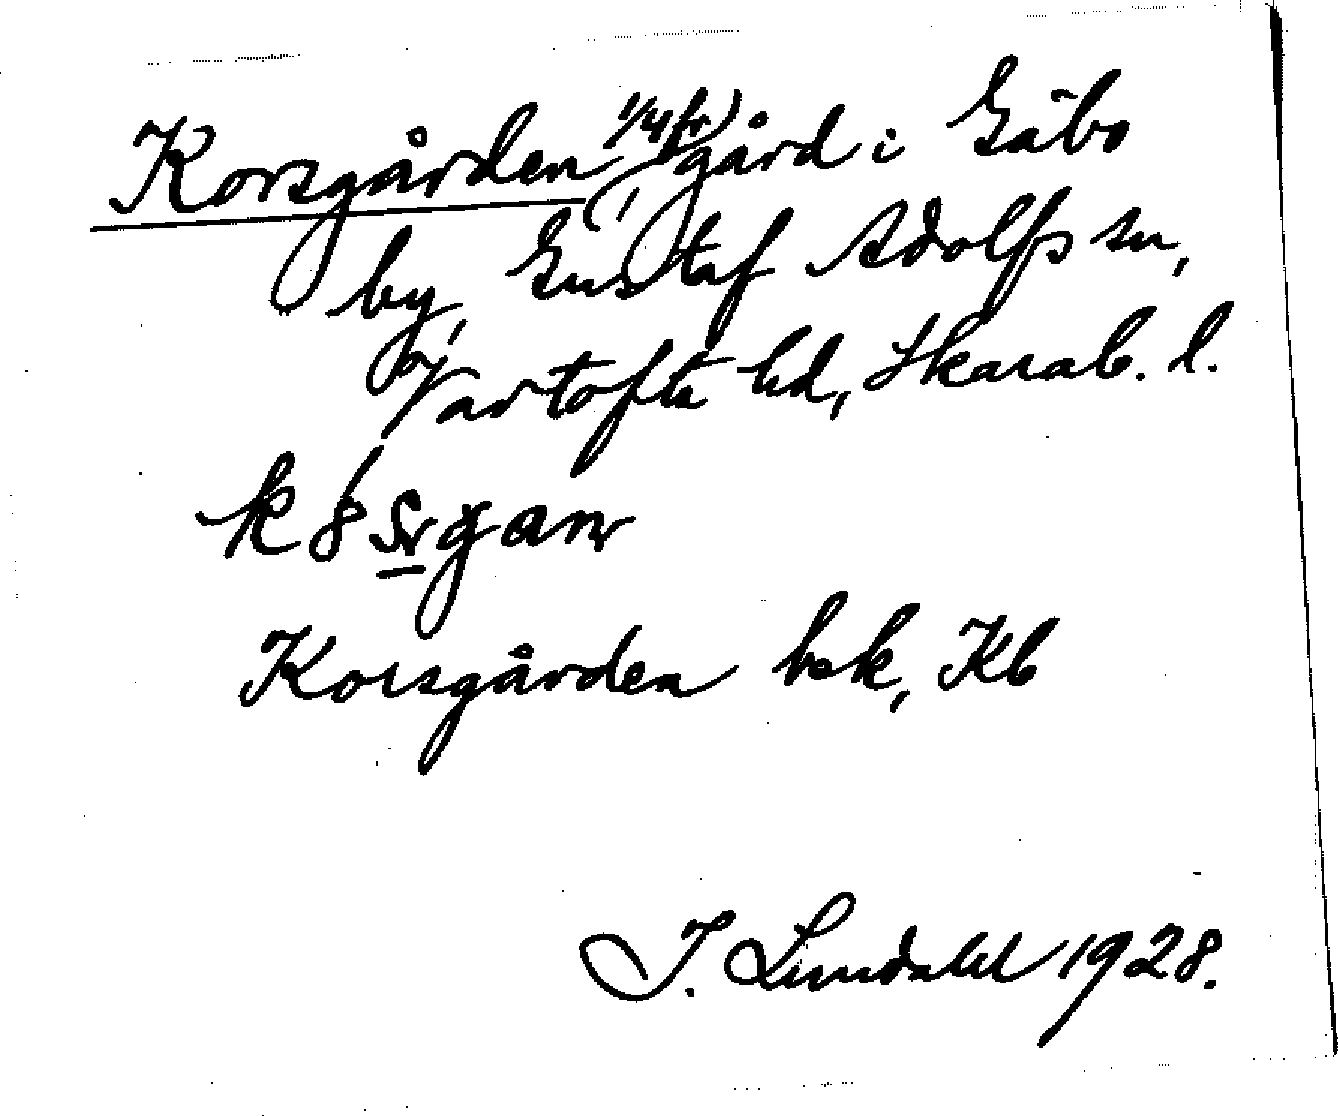 Korsgården (1/4 fr) gård i Gäbo
by, Gustaf Adolfs sn,
Vartofta hd, Skarab. l.
Korsgården bek, Kb
J. Lundahl 1928.